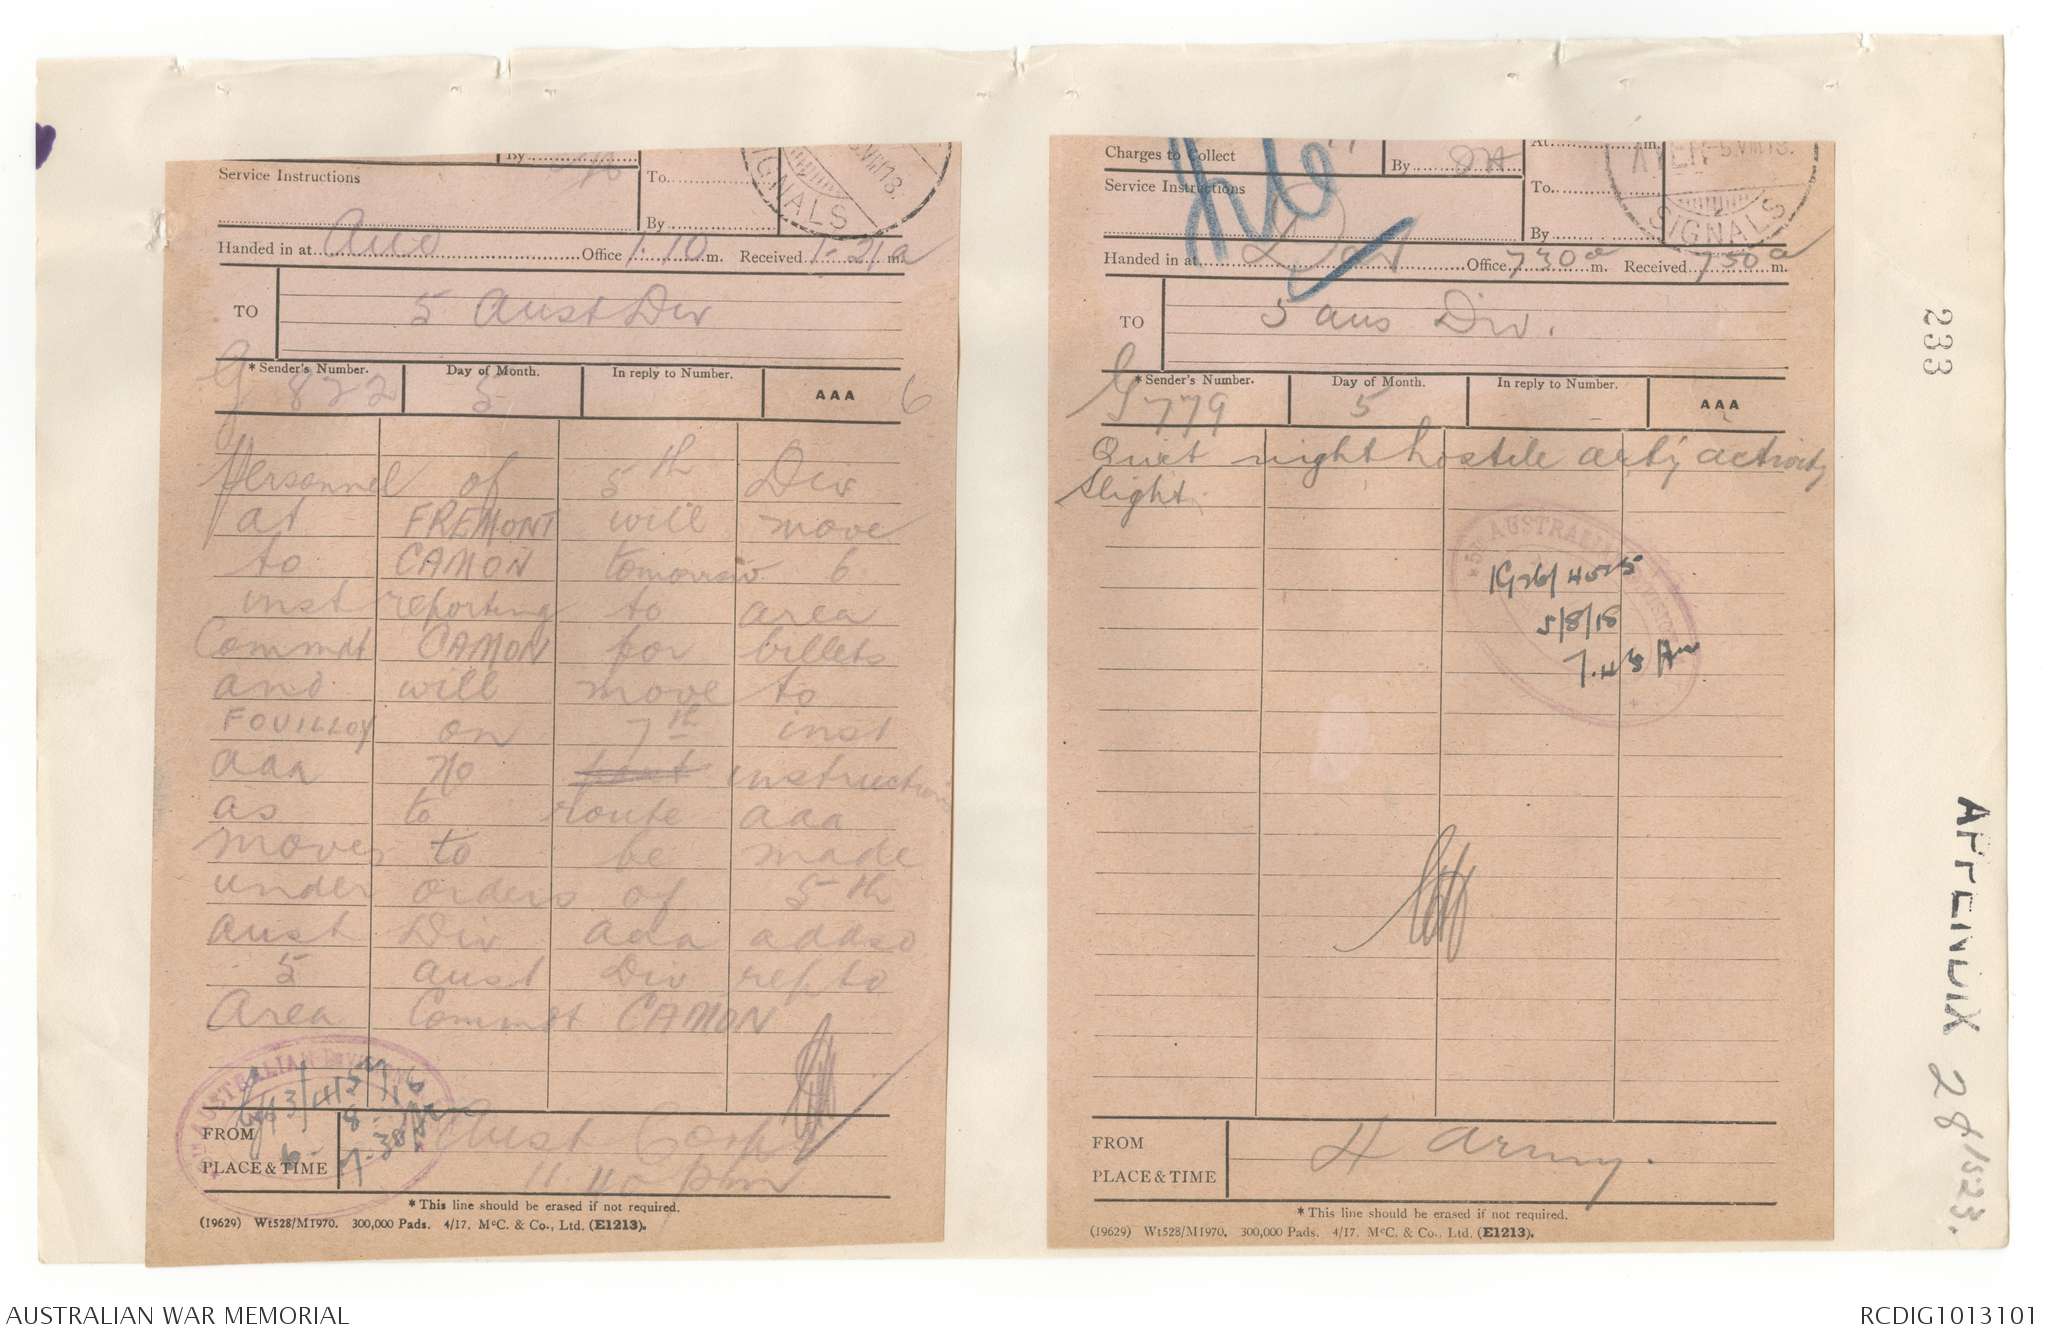 By
Service Instructions
To
By
SIGNALS
VIII 18.
Handed in at Auc Office 1.10 m. Received 1.21 a m.
TO 5 Aust Div
*Sender's Number. Day of Month. In reply to Number. AAA
G 822 5 6
Personnel of 5th Div
at FREMONT will move
to CAMON tomorrow 6
inst reporting to area
Commdt CAMON for billets
and will move to
FOUILLOY on 7th inst
aaa No instructions
as to route aaa
moves to be made
under orders of 5th
Aust Div aaa addsd
5 Aust Div repto
Area Commdt CAMON
AUSTRALIAN DIVISION
FROM Aust Corps
PLACE & TIME 11.40 pm
7-38
*This line should be erased if not required.
(19629) Wt528/M1970. 300,000 Pads. 4/17. McC. & Co., Ltd. (E1213).
Charges to Collect
By
At m.
Service Instructions
To
By
-5.VIII.18.
SIGNALS
Handed in at Office 730 a m. Received 750 a m.
TO 5 Aus Div.
*Sender's Number. Day of Month. In reply to Number. AAA
G 779 5
Quiet night hostile arty activity
slight.
5TH AUSTRALIAN DIVISION
IG26/4025
5/8/18
7.45 Am
FROM 4 Army.
PLACE & TIME
*This line should be erased if not required.
(19629) Wt528/M1970. 300,000 Pads. 4/17. McC. & Co., Ltd. (E1213).
233
APPENDIX 28/523.
AUSTRALIAN WAR MEMORIAL
RCDIG1013101